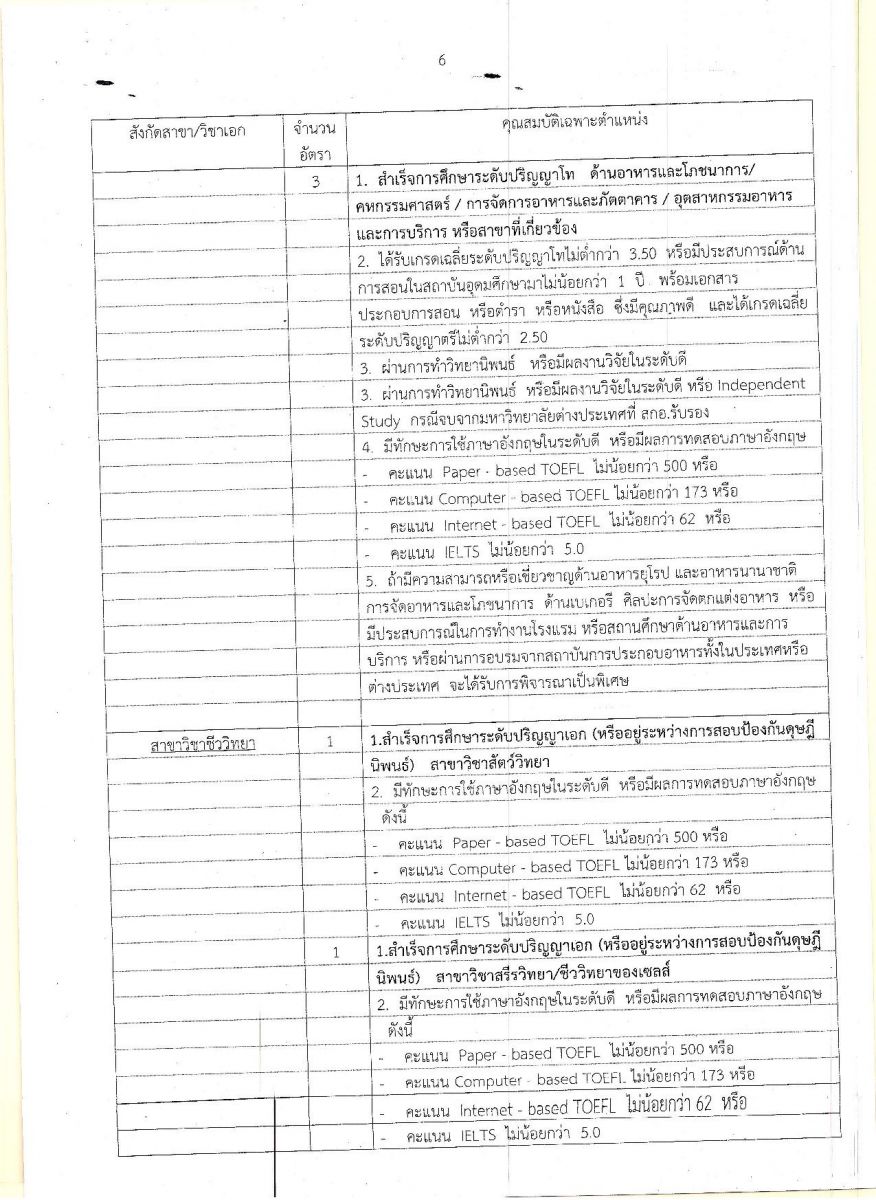 6
สังกัดสาขา/วิชาเอก
จำนวน
อัตรา
คุณสมบัติเฉพาะตำแหน่ง
3
1. สำเร็จการศึกษาระดับปริญญาโท ด้านอาหารและโภชนาการ/
คหกรรมศาสตร์ / การจัดการอาหารและภัตตาคาร / อุตสาหกรรมอาหาร
และการบริการ หรือสาขาที่เกี่ยวข้อง
2. ได้รับเกรดเฉลี่ยระดับปริญญาโทไม่ต่ำกว่า 3.50 หรือมีประสบการณ์ด้าน
การสอนในสถาบันอุดมศึกษามาไม่น้อยกว่า 1 ปี พร้อมเอกสาร
ประกอบการสอน หรือตำรา หรือหนังสือ ซึ่งมีคุณภาพดี และได้เกรดเฉลี่ย
ระดับปริญญาตรีไม่ต่ำกว่า 2.50
3. ผ่านการทำวิทยานิพนธ์ หรือมีผลงานวิจัยในระดับดี
3. ผ่านการทำวิทยานิพนธ์ หรือมีผลงานวิจัยในระดับดี หรือ Independent
Study กรณีจบจากมหาวิทยาลัยต่างประเทศที่ สกอ.รับรอง
4. มีทักษะการใช้ภาษาอังกฤษในระดับดี หรือมีผลการทดสอบภาษาอังกฤษ
- คะแนน Paper - based TOEFL ไม่น้อยกว่า 500 หรือ
- คะแนน Computer - based TOEFL ไม่น้อยกว่า 173 หรือ
- คะแนน Internet - based TOEFL ไม่น้อยกว่า 62 หรือ
- คะแนน IELTS ไม่น้อยกว่า 5.0
5. ถ้ามีความสามารถหรือเชี่ยวชาญด้านอาหารยุโรป และอาหารนานาชาติ
การจัดอาหารและโภชนาการ ด้านเบเกอรี ศิลปะการจัดตกแต่งอาหาร หรือ
มีประสบการณ์ในการทำงานโรงแรม หรือสถานศึกษาด้านอาหารและการ
บริการ หรือผ่านการอบรมจากสถาบันการประกอบอาหารทั้งในประเทศหรือ
ต่างประเทศ จะได้รับการพิจารณาเป็นพิเศษ
สาขาวิชาชีววิทยา
1
1.สำเร็จการศึกษาระดับปริญญาเอก (หรืออยู่ระหว่างการสอบป้องกันดุษฎี
นิพนธ์) สาขาวิชาสัตว์วิทยา
2. มีทักษะการใช้ภาษาอังกฤษในระดับดี หรือมีผลการทดสอบภาษาอังกฤษ
ดังนี้
- คะแนน Paper - based TOEFL ไม่น้อยกว่า 500 หรือ
- คะแนน Computer - based TOEFL ไม่น้อยกว่า 173 หรือ
- คะแนน Internet - based TOEFL ไม่น้อยกว่า 62 หรือ
- คะแนน IELTS ไม่น้อยกว่า 5.0
1
1.สำเร็จการศึกษาระดับปริญญาเอก (หรืออยู่ระหว่างการสอบป้องกันดุษฎี
นิพนธ์) สาขาวิชาสรีรวิทยา/ชีววิทยาของเซลล์
2. มีทักษะการใช้ภาษาอังกฤษในระดับดี หรือมีผลการทดสอบภาษาอังกฤษ
ดังนี้
- คะแนน Paper - based TOEFL ไม่น้อยกว่า 500 หรือ
- คะแนน Computer - based TOEFL ไม่น้อยกว่า 173 หรือ
- คะแนน Internet - based TOEFL ไม่น้อยกว่า 62 หรือ
- คะแนน IELTS ไม่น้อยกว่า 5.0